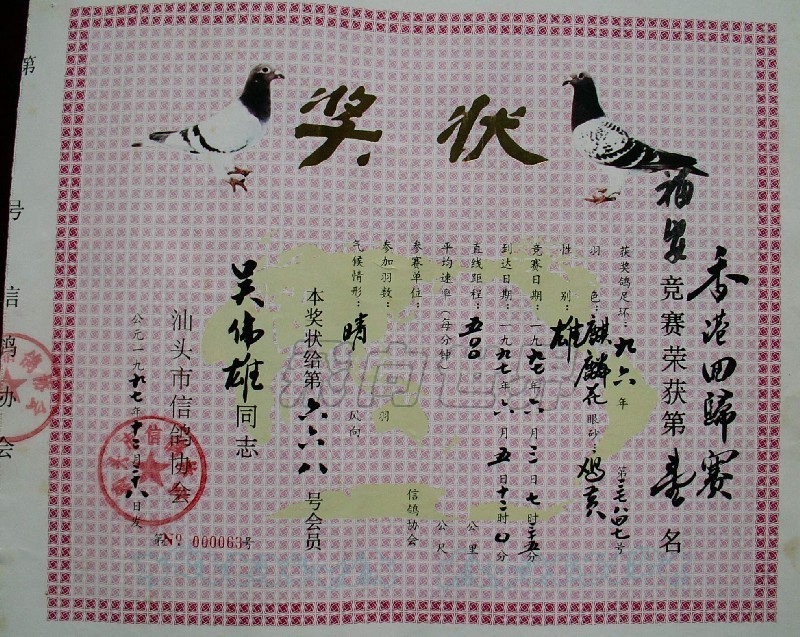 奖状
香港回歸赛
福安竞赛荣获第壹名
获奖鸽足环：九六年第二七八四七号
羽色：麒麟花 眼砂：鸡黄
性别：雄
竞赛日期：一九九七年六月三日七时三五分
到达日期：一九九七年六月五日十二时 分
直线距程：五00公里
平均速率（每分钟） 公尺
参赛单位： 信鸽协会
参加羽数： 羽
气候情形：晴 风向
本奖状给第六六八号会员
吴伟雄同志
汕头市信鸽协会
公元一九九七年十二月二八日发
第№ 000063号
第
号
信
鸽
协
会